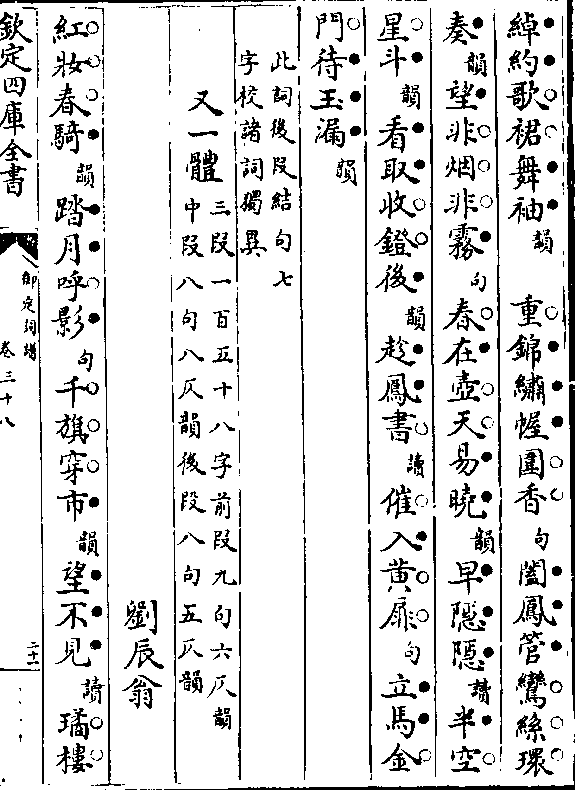 綽約歌裙舞袖韻 重錦繡幄圍香句闔鳳管鸞絲環
奏韻望非烟非霧句春在壺天易曉韻早隱隱讀半空
星斗韻看取收鐙後韻趂鳳書讀催入黄扉句立馬金
門待玉漏韻
此詞後段結句七
字校諸詞獨異
又一體
三段一百五十八字前段九句六仄韻
中段八句八仄韻後段八句五仄韻
劉辰翁
紅妝春騎韻踏月呼影句千旗穿市韻望不見讀璚樓
欽定四庫全書
御定詞譜
卷三十八
二十一